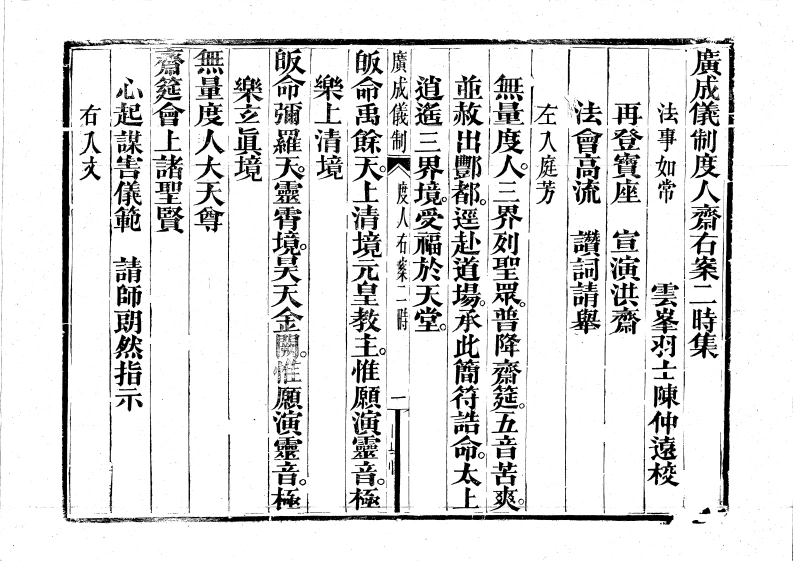 廣成儀制度人齋右案二時集
法事如常　雲峯羽士陳仲遠校
再登寶座　宣演洪齋
法會高流　讚詞請舉
左入庭芳
無量度人。三界列聖眾。普降齋筵。五音苦爽。
並赦出酆都。逕赴道場。承此簡符誥命。太上
逍遙三界境。受福於天堂。
廣成儀制　度人右案二時　一
皈命禹餘天。上清境元皇教主。惟願演靈音。極
樂上清境
皈命彌羅天。靈霄境。昊天金闕。惟願演靈音。極
樂玄眞境
無量度人大天尊
齋筵會上諸聖賢
心起謀害儀範　請師朗然指示
右入文